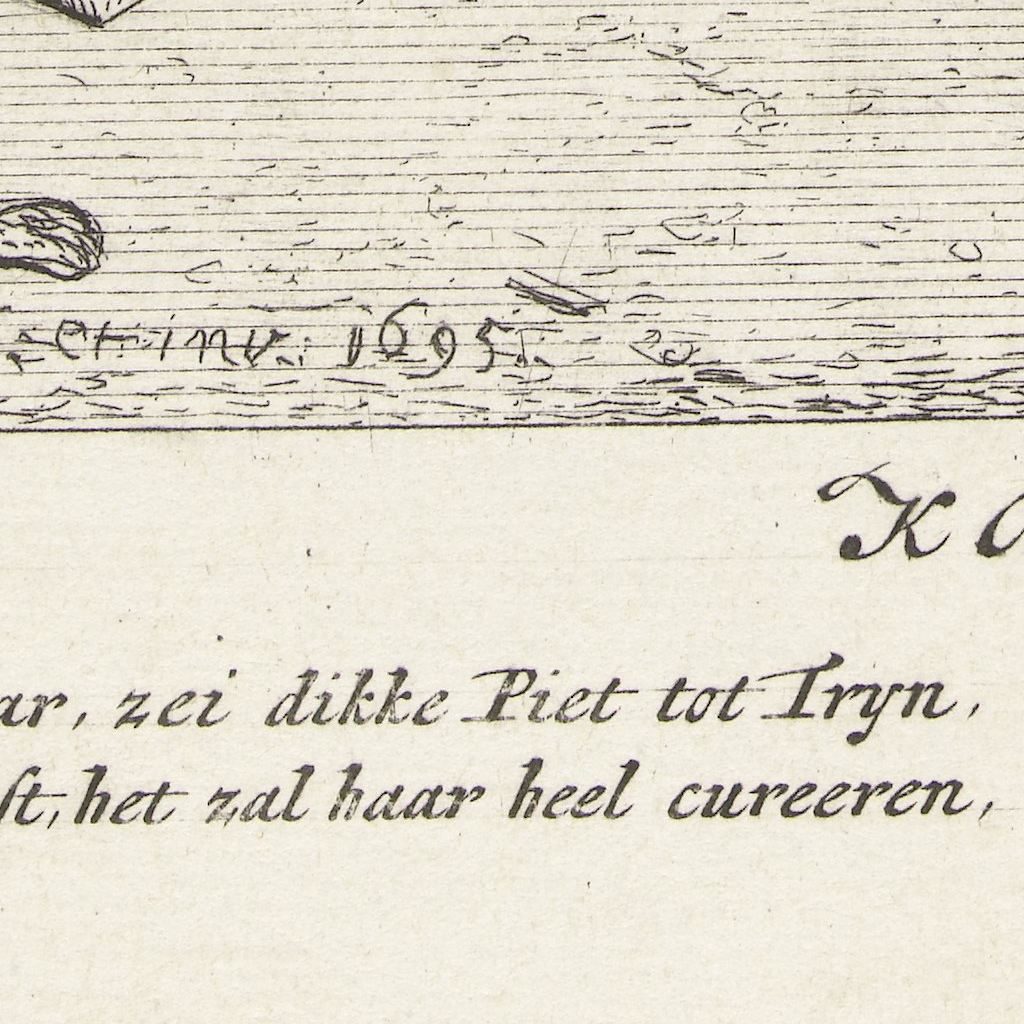 et inv. 1695.
K
ar, zei dikke Piet tot Tryn,
ft, het zal haar heel cureeren,